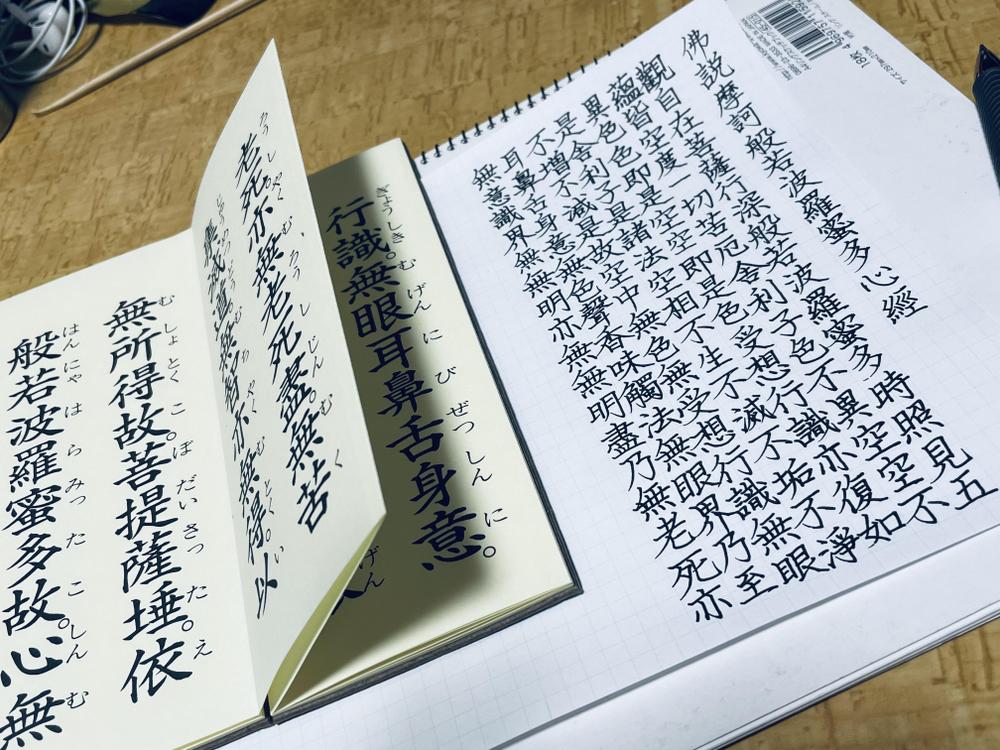 佛説摩訶般若波羅蜜多心經
觀自在菩薩行深般若波羅蜜多時照見五
蘊皆空度一切苦厄舍利子色不異空空不
異色色即是空空即是色受想行識亦復如
是舍利子是諸法空相不生不滅不垢不淨
不增不減是故空中無色無受想行識無眼
耳鼻舌身意無色聲香味觸法無眼界乃至
無意識界無無明亦無無明盡乃無老死亦
ぎょうしき むげんにびぜつしんに
行識。無眼耳鼻舌身意。
げん
ろうしやくむ ろうしじんむく
老死亦無老死盡。無苦
集滅道無智亦無得。以
むしょとくこ ぼだいさった え
無所得故。菩提薩埵。依
はんにゃはらみったこ しんむ
般若波羅蜜多故。心無